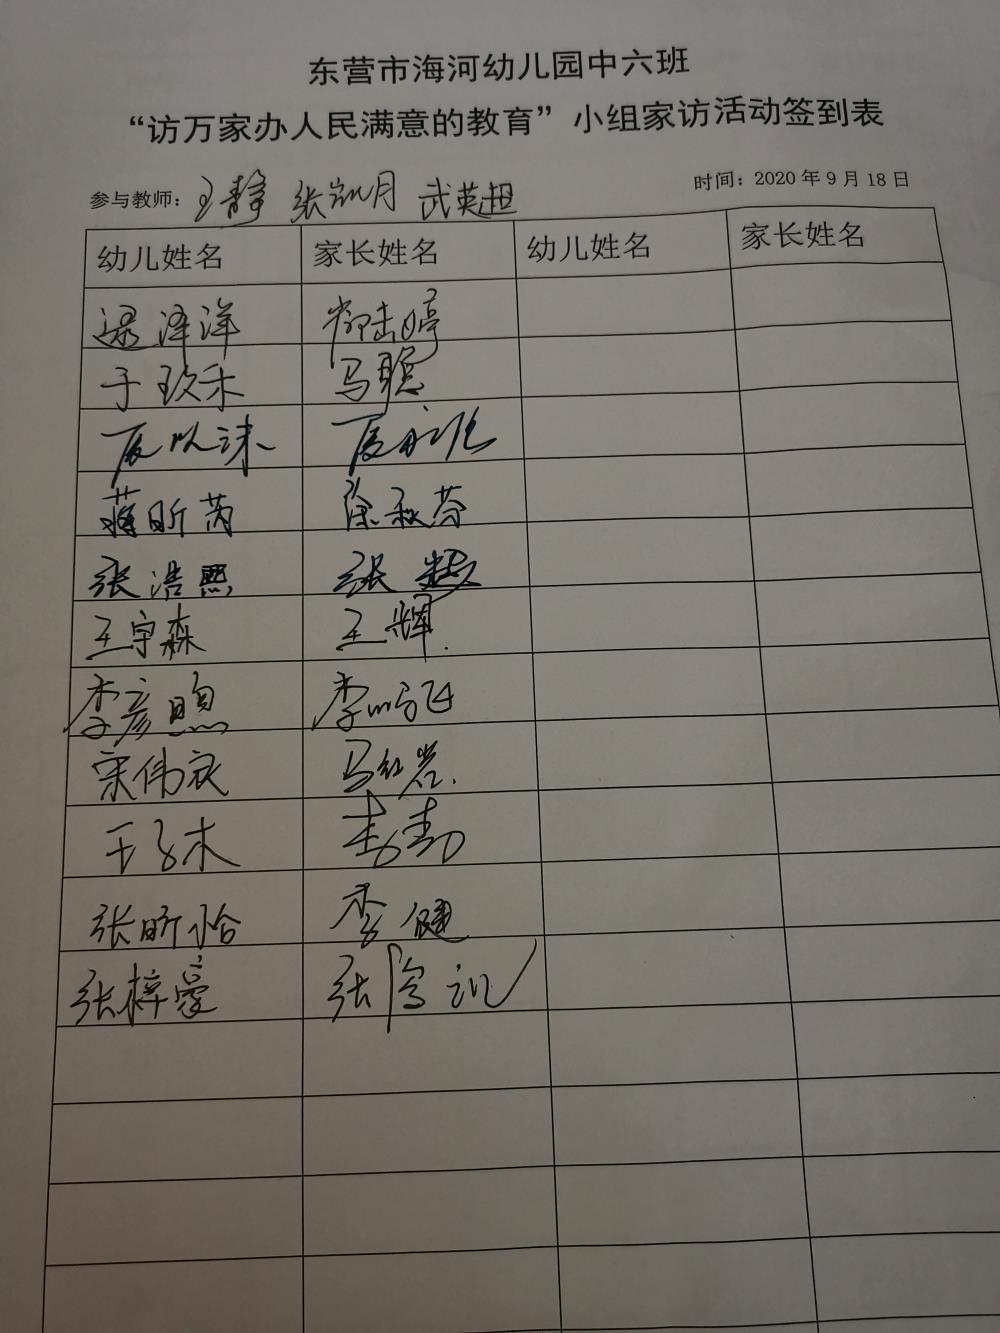 东营市海河幼儿园中六班
“访万家办人民满意的教育”小组家访活动签到表
参与教师：王静 张凯月 武英超 时间：2020年9月18日
幼儿姓名 家长姓名 幼儿姓名 家长姓名
逯泽洋
于玫禾 马聪
蒋昕芮 徐秋芬
张浩熙 张
王宇森 王辉
李彦煦 李鸣飞
宋伟宸 马红岩
王子木 李青
张昕怡 李健
张梓豪 张